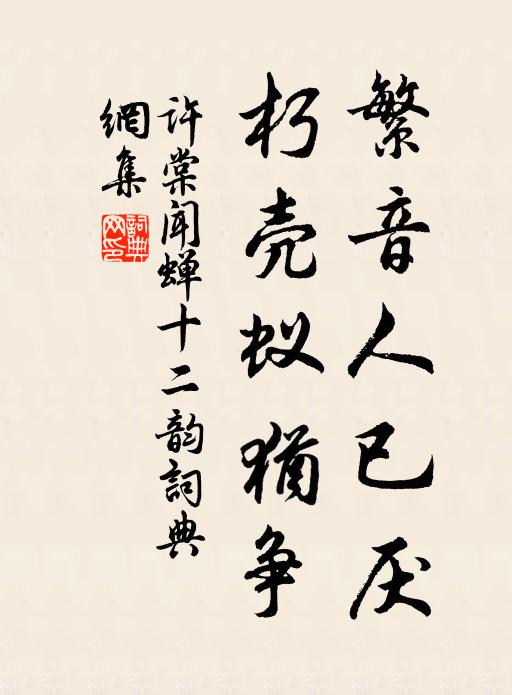 繁音人已厌
朽壳蚁犹争
许棠闻蝉十二韵詞典
網集
詞典
网印